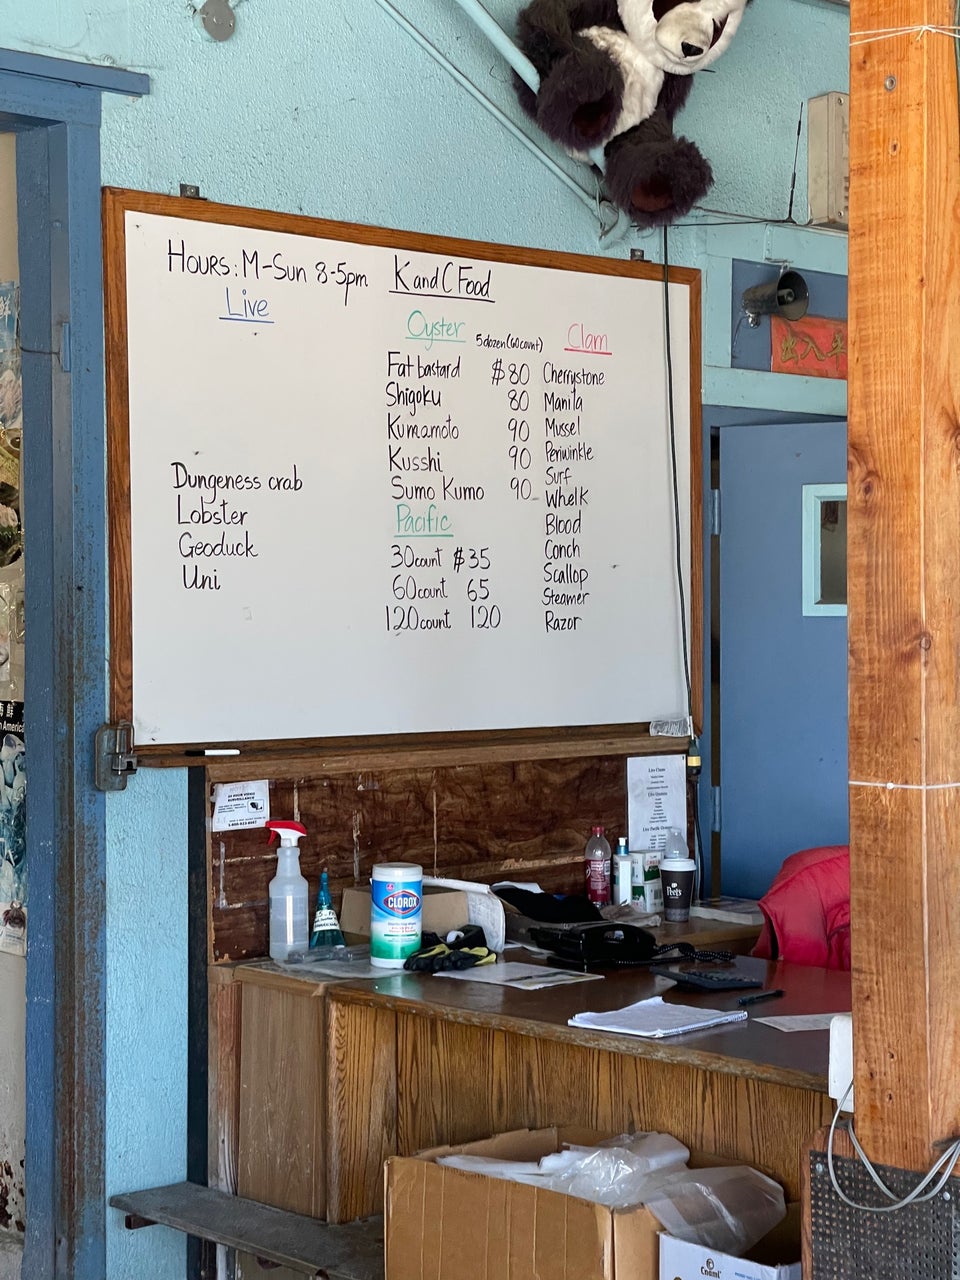 Hours: M-Sun 8-5pm
K and C Food
Live
Dungeness crab
Lobster
Geoduck
Uni
Oyster 5dozen(60count)
Fat bastard $80
Shigoku 80
Kumamoto 90
Kusshi 90
Sumo Kumo 90
Pacific
30count $35
60count 65
120count 120
Clam
Cherrystone
Manila
Mussel
Periwinkle
Surf
Whelk
Blood
Conch
Scallop
Steamer
Razor
出入平
24 HOUR VIDEO
SURVEILLANCE
Live Clams
Live Oysters
CLOROX
Peet's